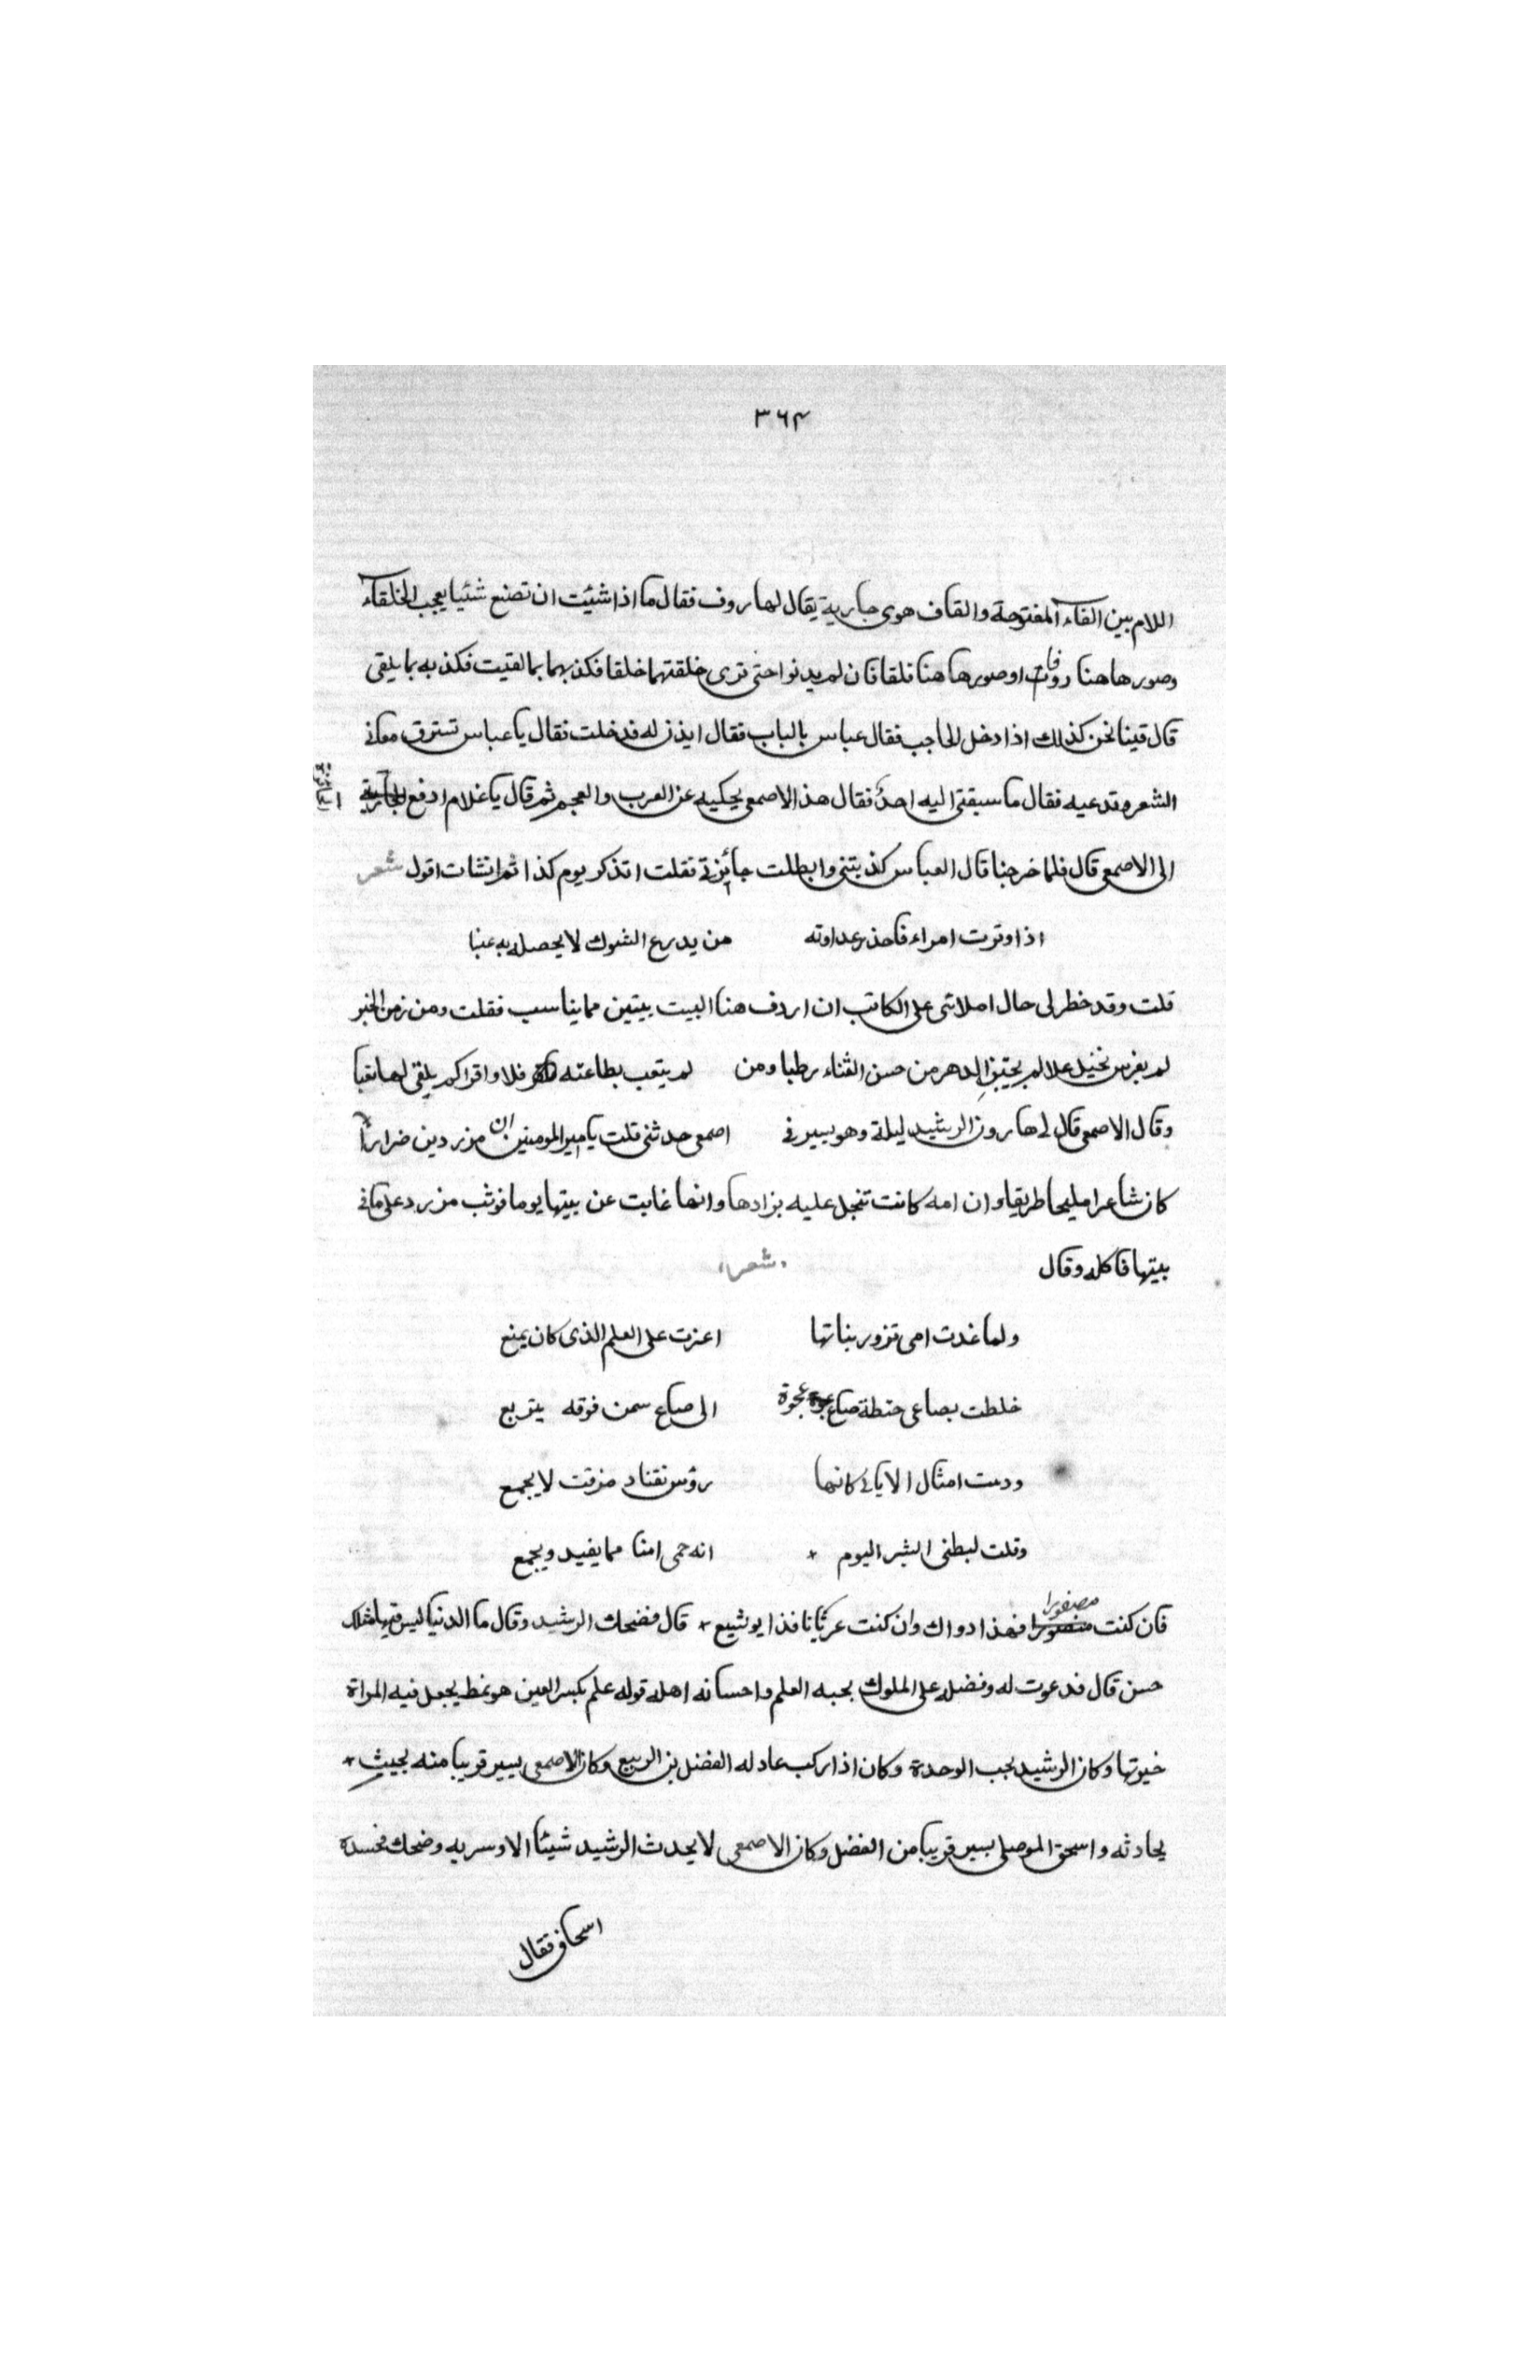 ٣٦٤
اللام بين القاء المفتوحة والقاف هوى جارية يقال لها روف فقال ما اذا شئيت ان تصنع شئيا يعجب الخلقاء
وصور هاهنا روفات اوصور هاهنا فلقا فان لم يدنوا حتى ترى خلقتهما خلقا فكذبهما بما لقيت فكذبه بما يلقى
قال فينا نحن كذلك اذا دخل الحاجب فقال عباس بالباب فقال ايذن له فدخلت فقال يا عباس تسترق معانى
الشعر وتدعيه فقال ما سبقتى اليه احدٌ فقال هذا الاصمعى يحكيه عن العرب والعجم ثم قال يا غلام ادفع الجائزة
الى الاصمعى قال فلما خرجنا قال العباس كذبتنى وابطلت جائزتى فقلت اتذكر يوم كذا ثم انشات اقول شعر
اذا وترت امراء فاحذر عداوته من يدرع الشوك لا يحصل به عنبا
قلت وقد خطر لى حال املائى على الكاتب ان اردف هنا البيت بيتين مما يناسب فقلت ومن زمن الخبر
لم يغرس نخيل علا لم يجتبى الدهر من حسن الثناء رطبا ومن لم يتعب بطاعته فلا واقراكم يلقى لها تعبا
وقال الاصمعى قال لى هارون الرشيد ليلة وهو يسير فى اصمعى حدثنى قلت يا امير المومنين ان مزرد بن ضرارٍ
كان شاعرا مليحا طريقا وان امه كانت تبخل عليه بزادها وانها غابت عن بيتها يوما فوثب مزرد على ما فى
بيتها فاكله وقال شعر
ولما غدت امى تزور بناتها اعزت على العلم الذى كان يمنع
خلطت بصاعى حنطة صاع عجوة الى صاع سمن فوقه يتربع
ودست امثال الاياى كانها رؤس نقناد مزقت لا يجمع
وقلت لبطنى اليوم انه حمى امنا مما يفيد ويجمع
فان كنت مصفورا فهذا دواك وان كنت عرثانا فذا يو تشبع قال فضحك الرشيد وقال ما الدنيا ليس فيها مثلك
حسن قال فدعوت له وفضله على الملوك بحبه العلم واحسانه اهله قوله علم بكسر العين هو نمط يجعل فيه المراة
خيوتها وكان الرشيد يجب الوحدة وكان اذا ركب عادله الفضل بن الربيع وكان الاصمعى يسير قريبا منه بحيث
يحادثه واسحق الموصلى يسير قريبا من الفضل وكان الاصمعى لا يحدث الرشيد شيئا الا وسر به وضحك فحسده
اسحاق فقال